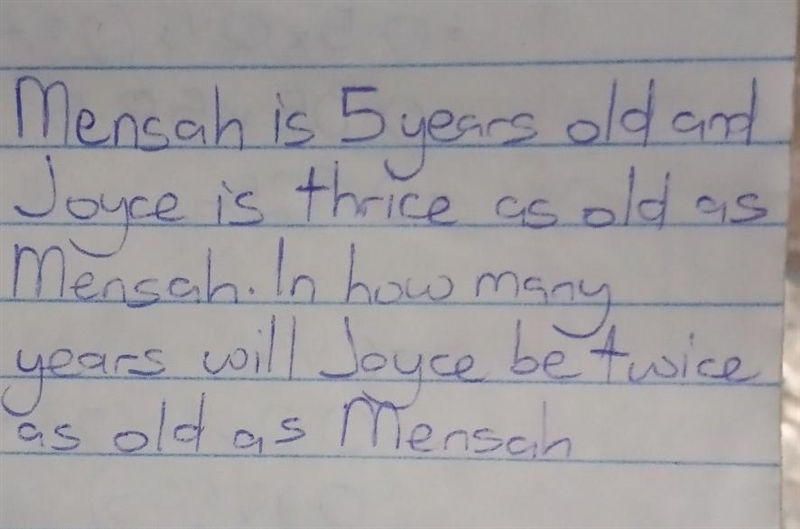 Mensah is 5 years old and
Joyce is thrice as old as
Mensah. In how many
years will Joyce be twice
as old as Mensah